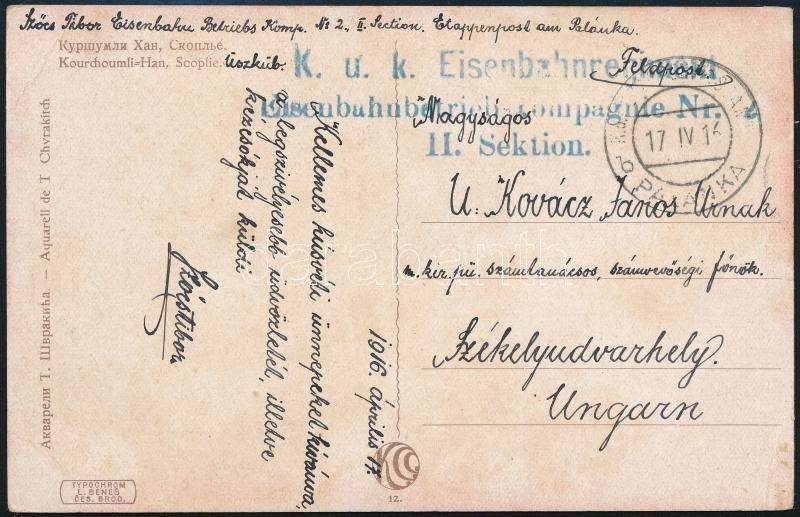 Szőcs Tibor Eisenbahn Betriebs Komp. № 2., II. Section. Etappenpost am Palánka.
Куршумли Хан, Скопље.
Kourchoumli-Han, Scoplie. Üszküb.
Feldpost.
K. u. k. Eisenbahnregiment
Eisenbahnbetriebskompagnie Nr. 2
II. Sektion.
17 IV 16
b PALÁNKA
Nagyságos
U. Kovácz János Úrnak
m. kir. pü. számtanácsos, számvevőségi főnök.
Székelyudvarhely.
Ungarn
1916. április 17.
Kellemes húsvéti ünnepeket kívánva,
a legszívélyesebb üdvözletét, illetve
kézcsókját küldi
Szőcstibor
Акварели Т. Швракића — Aquarell de T Chvrakitch
TYPOCHROM
L. BENEŠ
ČES. BROD.
12.
darabanth